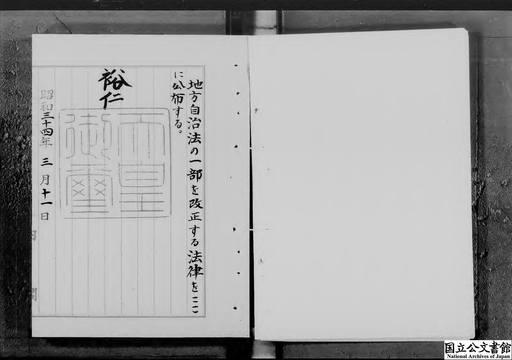 地方自治法の一部を改正する法律をここ
に公布する。
裕仁
天皇
御璽
昭和三十四年三月十一日
国立公文書館
National Archives of Japan